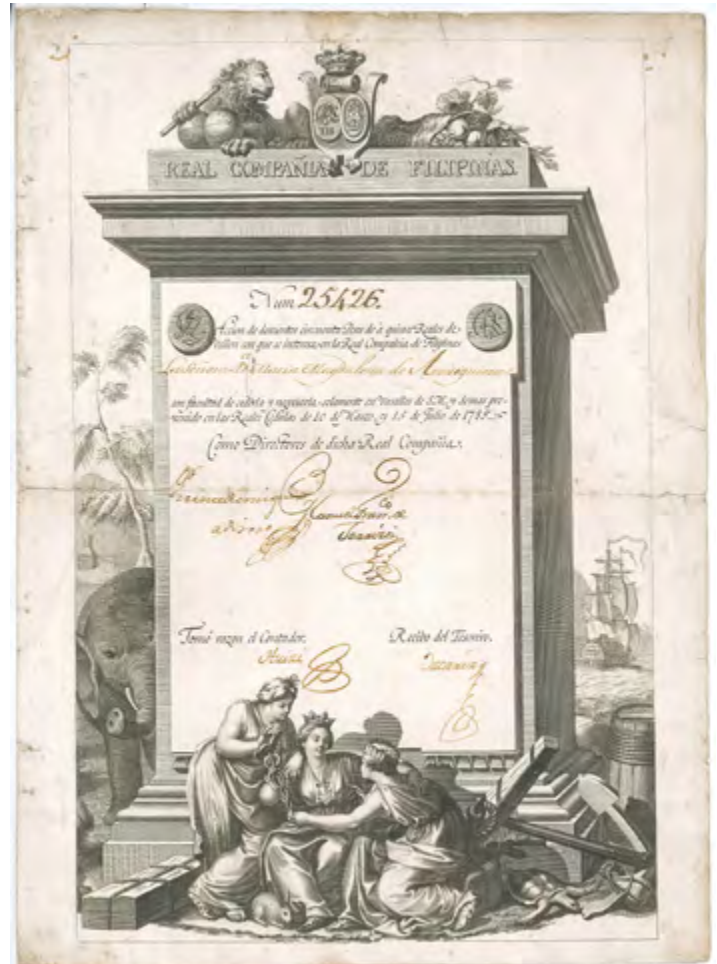 REAL COMPAÑIA DE FILIPINAS.
Num 25426.
Accion de doscientos cincuenta Pesos de à quince Reales de
vellon con que se interesa en la Real Compañia de Filipinas
la Señora D.ª Maria Magdalena de
con facultad de cederla y negociarla solamente en Vasallos de S.M. y demas pre-
venido en las Reales Cédulas de 10 de Marzo y 15 de Julio de 1785.
Como Directores de dicha Real Compañia.
Tomé razon el Contador.
Recibo del Tesorero.